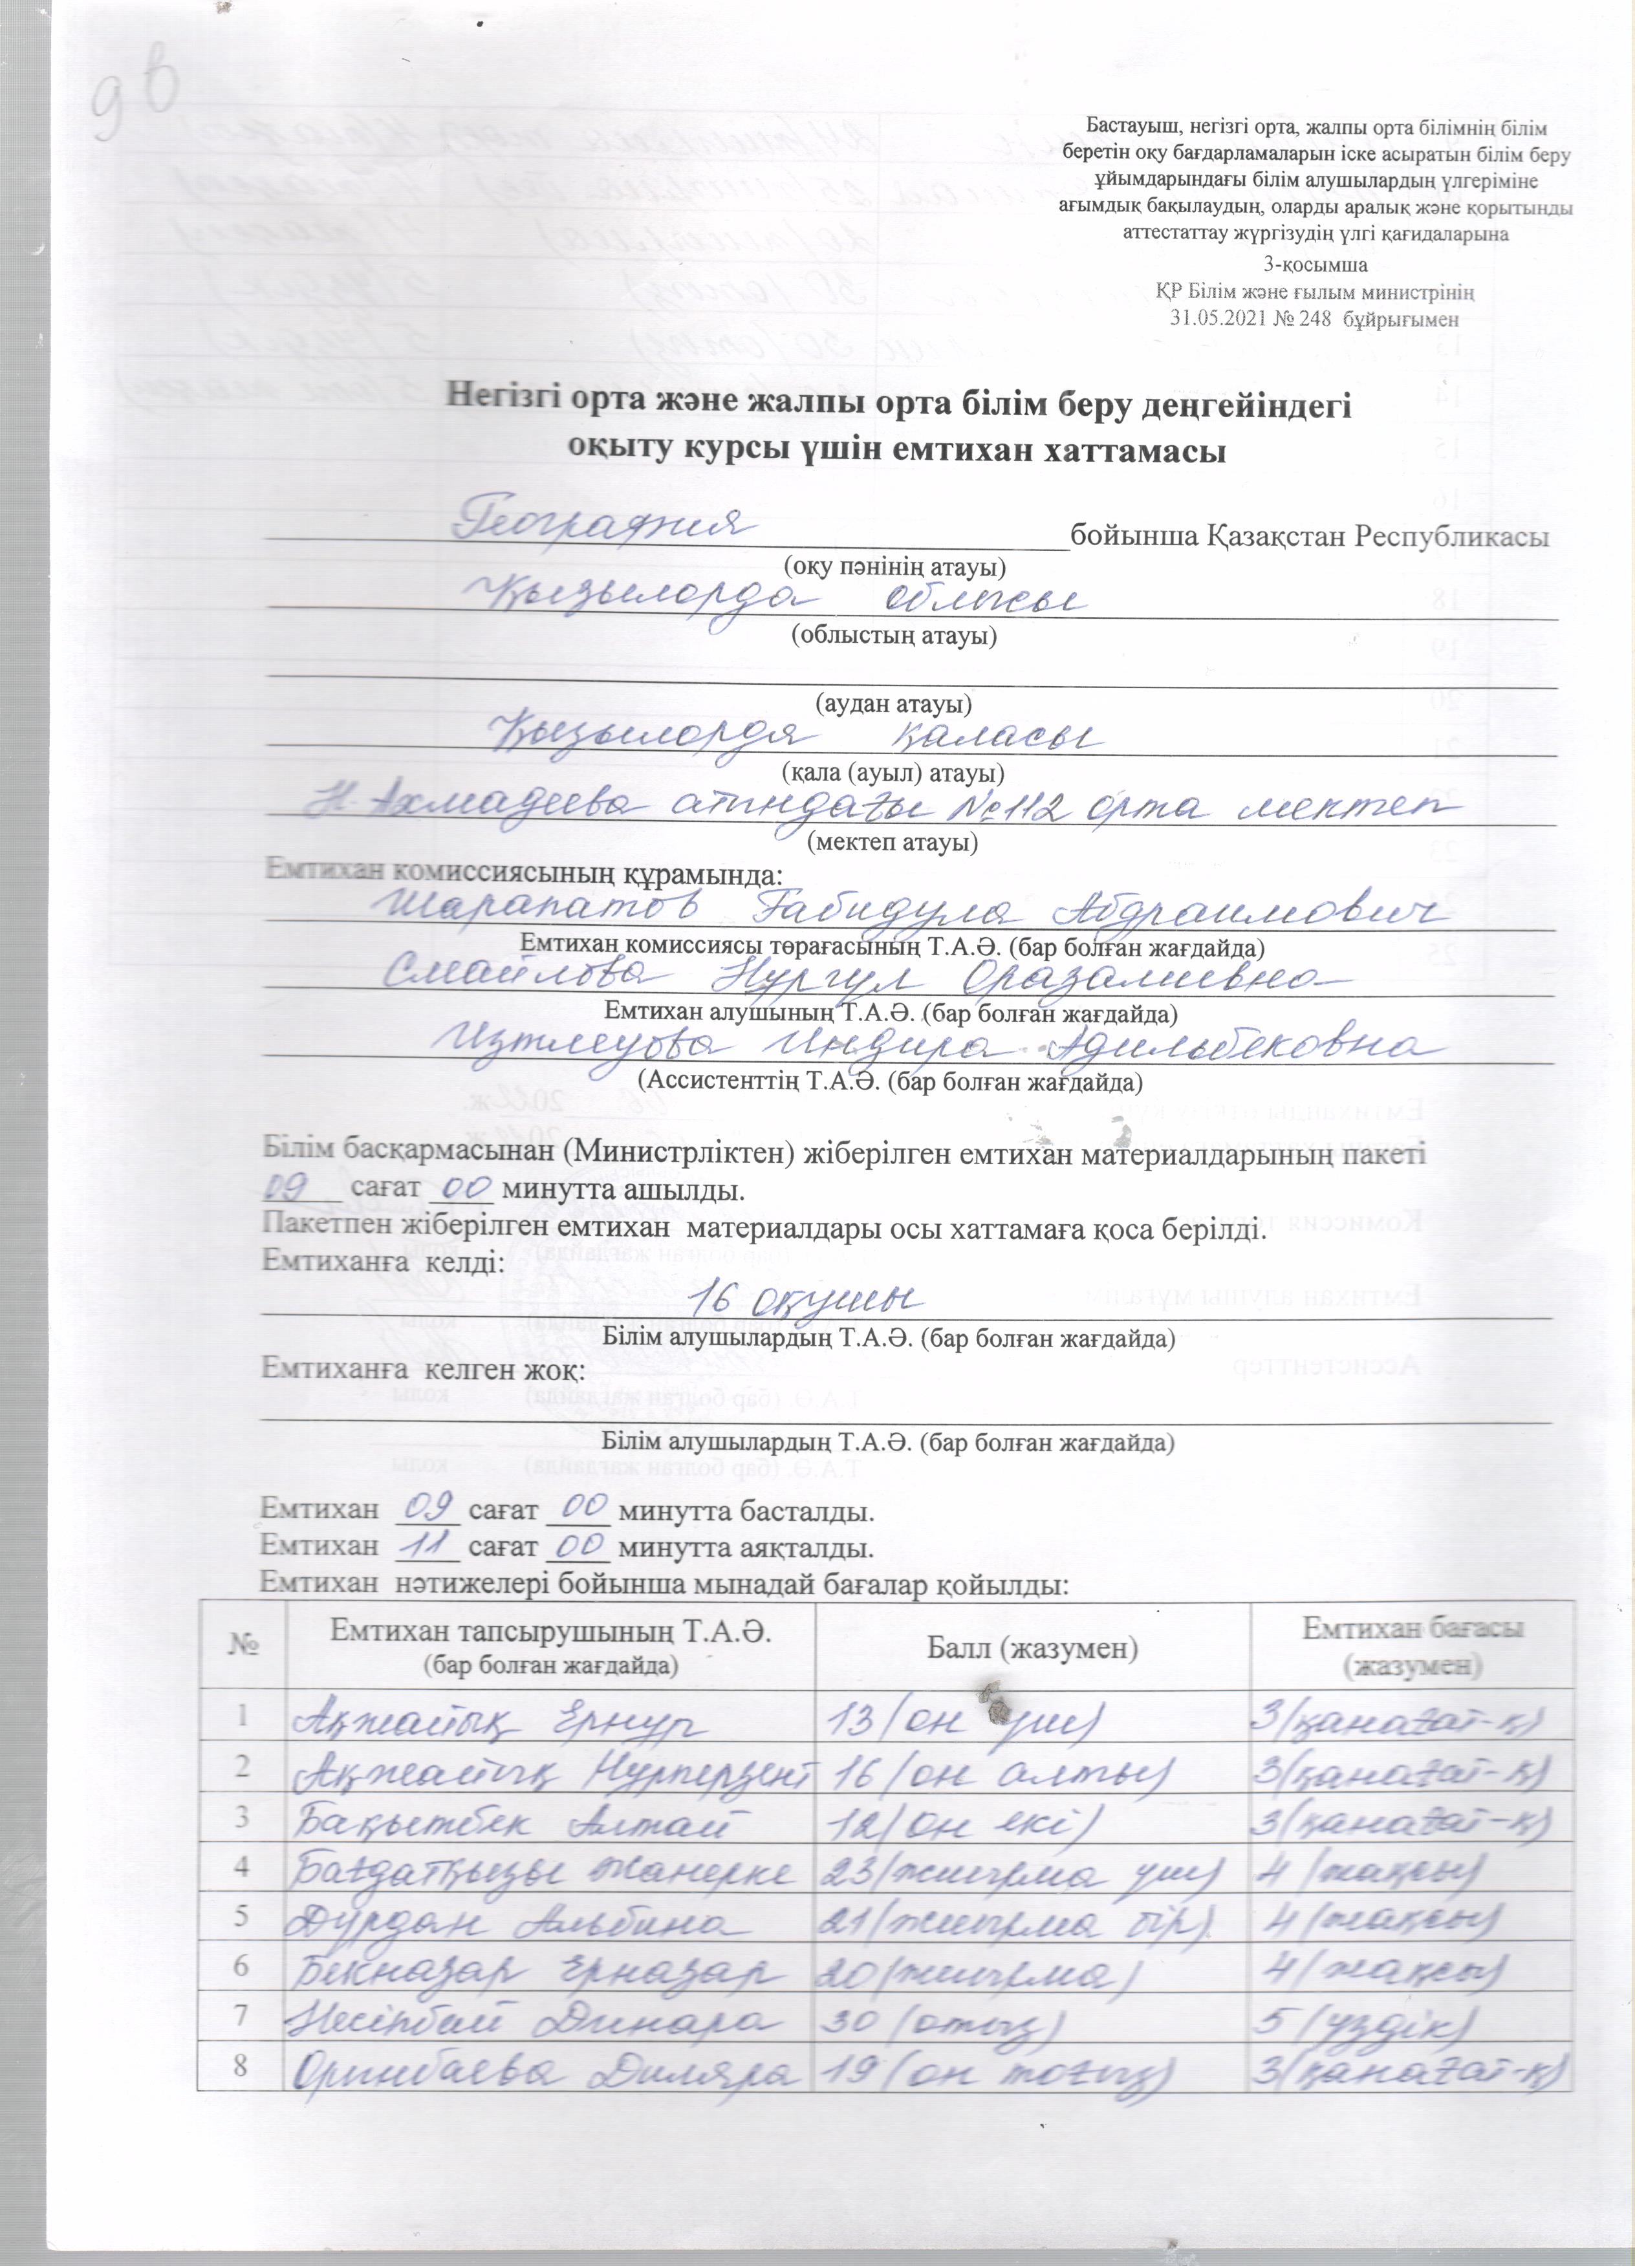 9 в
Бастауыш, негізгі орта, жалпы орта білімнің білім
беретін оқу бағдарламаларын іске асыратын білім беру
ұйымдарындағы білім алушылардың үлгеріміне
ағымдық бақылаудың, оларды аралық және қорытынды
аттестаттау жүргізудің үлгі қағидаларына
3-қосымша
ҚР Білім және ғылым министрінің
31.05.2021 № 248 бұйрығымен
Негізгі орта және жалпы орта білім беру деңгейіндегі
оқыту курсы үшін емтихан хаттамасы
География бойынша Қазақстан Республикасы
(оқу пәнінің атауы)
Қызылорда облысы
(облыстың атауы)
(аудан атауы)
Қызылорда қаласы
(қала (ауыл) атауы)
Н. Ахмадеева атындағы №112 орта мектеп
(мектеп атауы)
Емтихан комиссиясының құрамында:
Шарапатов Ғабидулла Абдраимович
Емтихан комиссиясы төрағасының Т.А.Ә. (бар болған жағдайда)
Смайлова Нургул Оразалиевна
Емтихан алушының Т.А.Ә. (бар болған жағдайда)
Изтлеуова Индира Адильбековна
(Ассистенттің Т.А.Ә. (бар болған жағдайда)
Білім басқармасынан (Министрліктен) жіберілген емтихан материалдарының пакеті
09 сағат 00 минутта ашылды.
Пакетпен жіберілген емтихан материалдары осы хаттамаға қоса берілді.
Емтиханға келді:
16 оқушы
Білім алушылардың Т.А.Ә. (бар болған жағдайда)
Емтиханға келген жоқ:
Білім алушылардың Т.А.Ә. (бар болған жағдайда)
Емтихан 09 сағат 00 минутта басталды.
Емтихан 11 сағат 00 минутта аяқталды.
Емтихан нәтижелері бойынша мынадай бағалар қойылды:
№ Емтихан тапсырушының Т.А.Ә. (бар болған жағдайда) Балл (жазумен) Емтихан бағасы (жазумен)
1 Ақжайық Ернур 13 (он үш) 3(қанағат-қ)
2 Ақжайық Нурперзент 16 (он алты) 3(қанағат-қ)
3 Бақытбек Алтай 12 (он екі) 3(қанағат-қ)
4 Бағдатқызы Жанерке 23 (жиырма үш) 4 (жақсы)
5 Дурдан Альбина 21 (жиырма бір) 4 (жақсы)
6 Бекназар Ерназар 20 (жиырма) 4 (жақсы)
7 Несіпбай Динара 30 (отыз) 5 (үздік)
8 Оринбаева Диляра 19 (он тоғыз) 3(қанағат-қ)